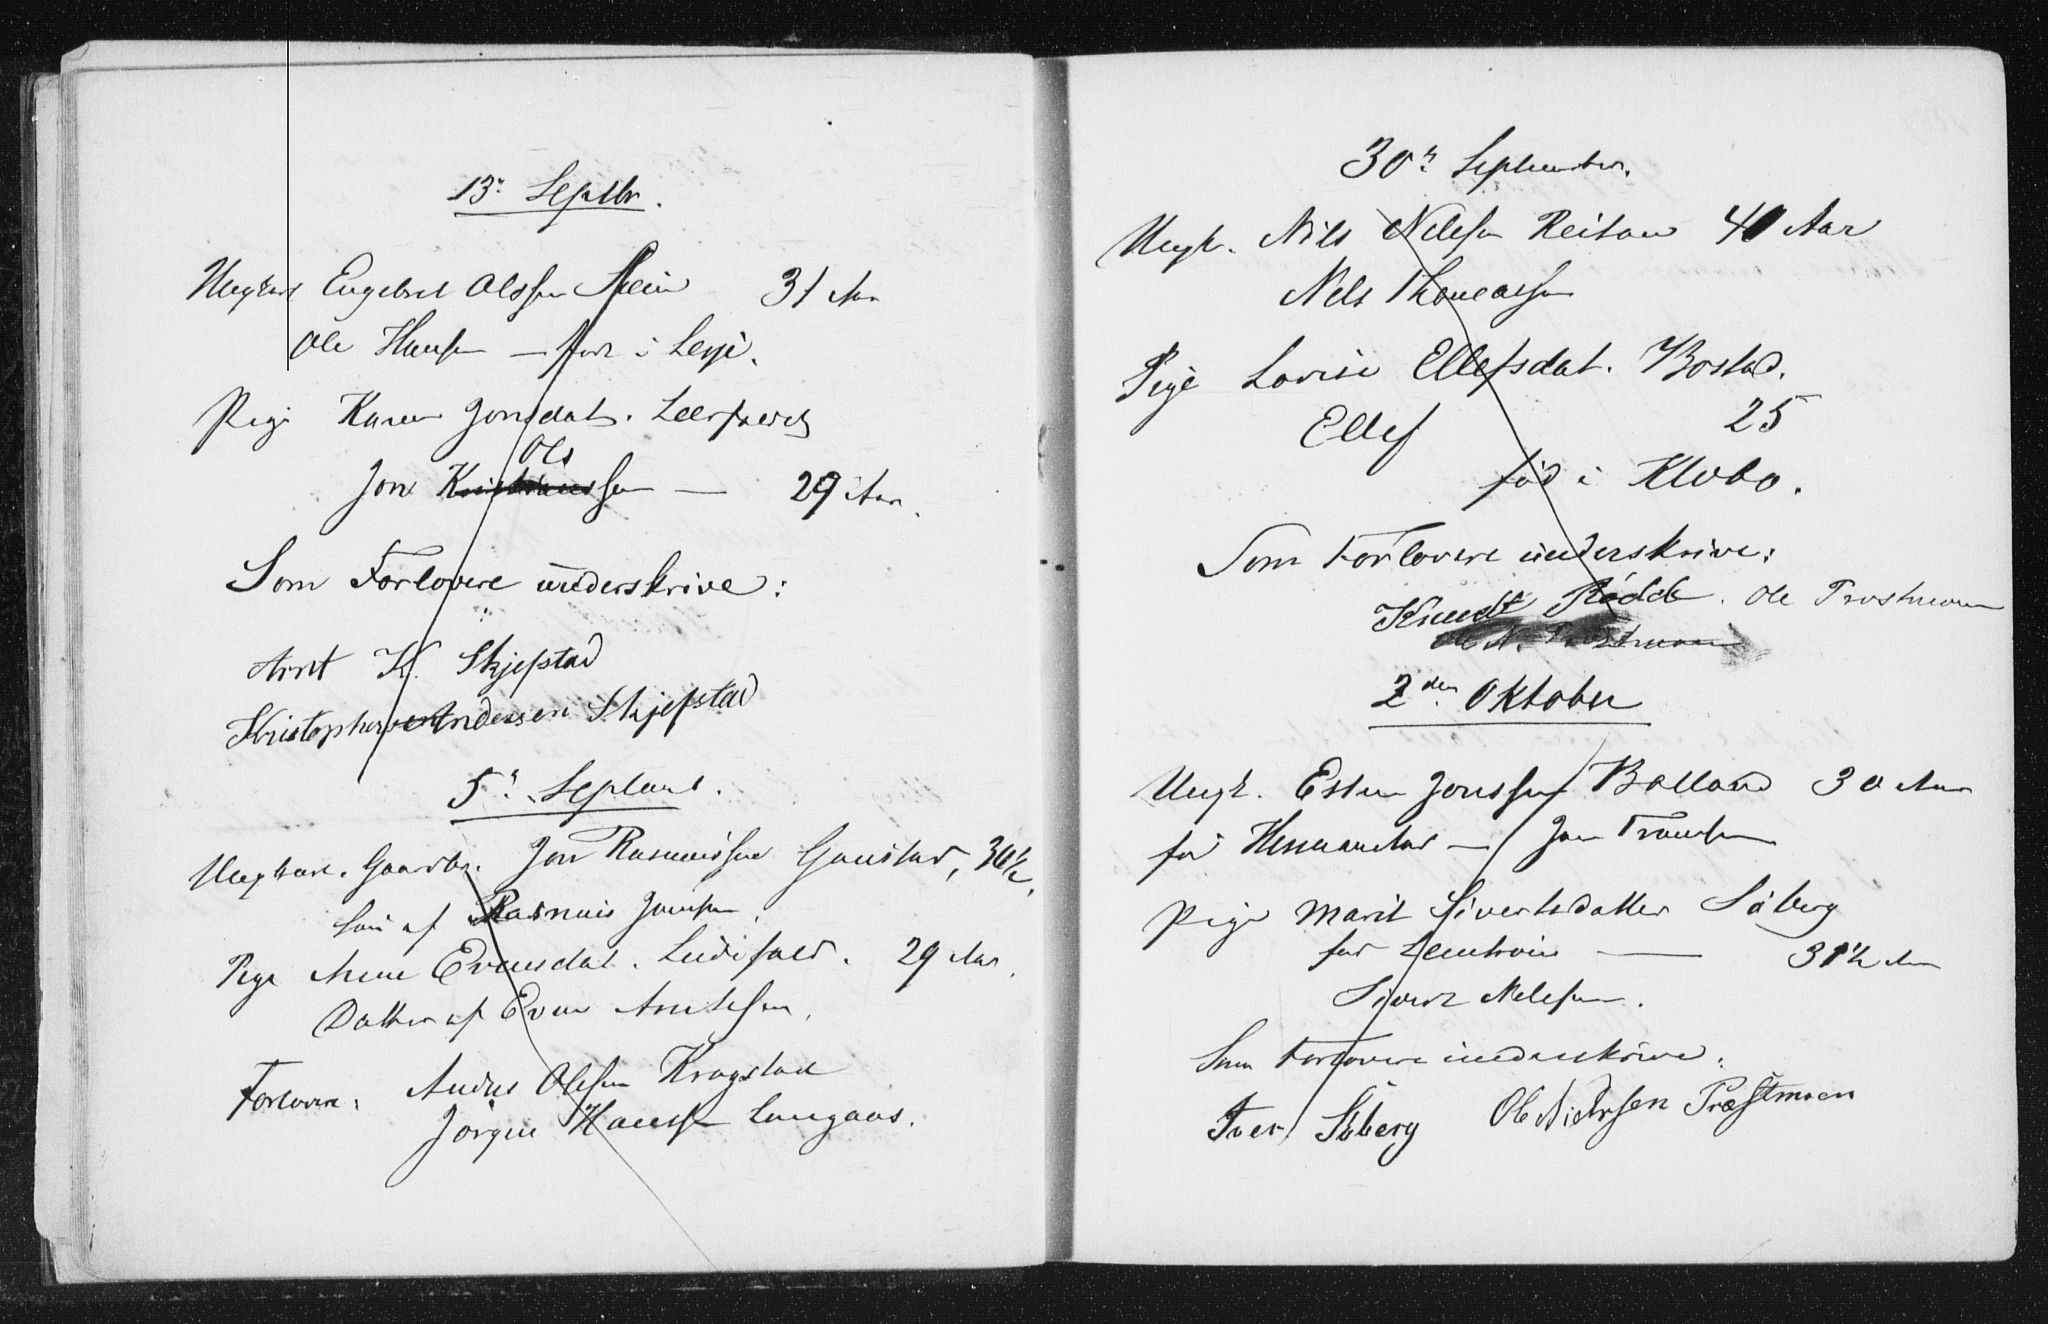 13de Septbr.
Ungkarl Engebret Olssen Stein 31 Aar
Ole Hansen — født i Lesje.
Pige Karen Jonsdat.
Ols
Jon Kristianssen — 29 Aar.
Som Forlovere underskrive:
Arnt K. Skjefstad
Kristopher Andersen Skjefstad
5te Septemb.
Ungkarl. Gaardbr. Jon Rasmussen Gaustad, 30½.
Søn af Rasmus Jonsen.
Pige Anne Evensdat. 29 Aar.
Datter af Even Arntsen.
Forlovere: Anders Olsen Krogstad
Jørgen Hansen Langaas.
30te September.
Ungk. Nils Nilssen Reitan 40 Aar
Nils Thomassen
Pige Lovise Ellefsdat. Bostad.
Ellef 25
fød i Klæbo.
Som Forlovere underskrive:
Knudt Rødde. Ole Prestmoen
Ole N. Prestmoen
2den Oktober
Ungk. Esten Jonssen Volland 30 Aar
Jon
Pige Marit Sivertsdatter Søberg
31½ Aar
Sivert Nilssen.
Som Forlovere underskrive:
Iver Søberg Ole Nielsen Præstmoen